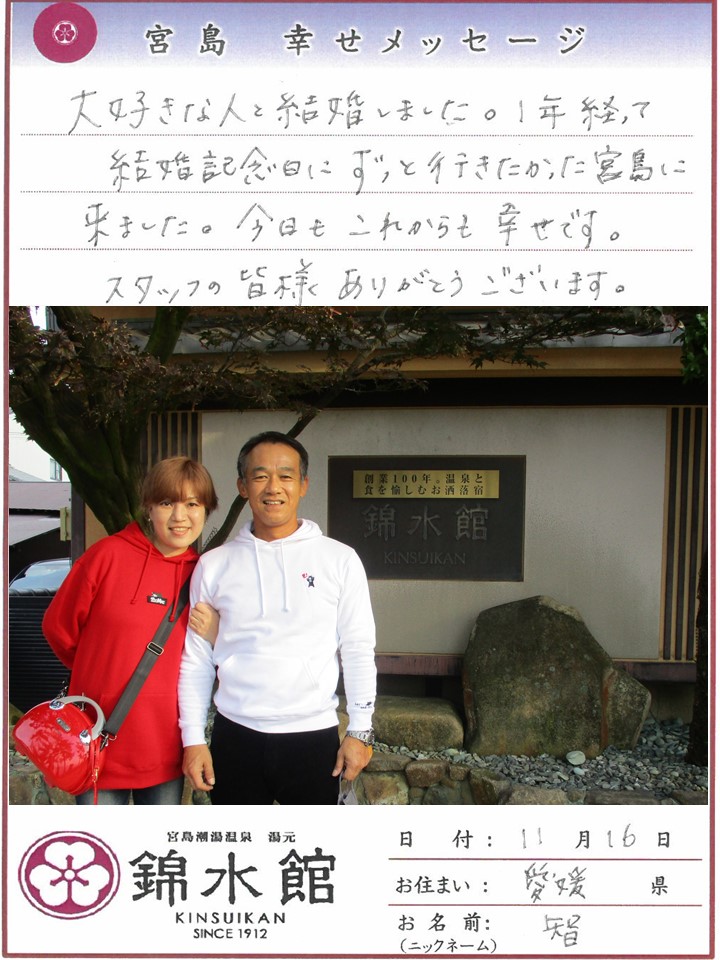 宮島 幸せメッセージ
大好きな人と結婚しました。1年経って
結婚記念日に ずっと行きたかった宮島に
来ました。今日も これからも 幸せです。
スタッフの皆様 ありがとう ございます。
創業100年。温泉と
食を愉しむお洒落宿
錦水館
KINSUIKAN
宮島潮湯温泉 湯元
錦水館
KINSUIKAN
SINCE 1912
日 付: 11 月 16 日
お住まい: 愛媛 県
お名前: 智
(ニックネーム)